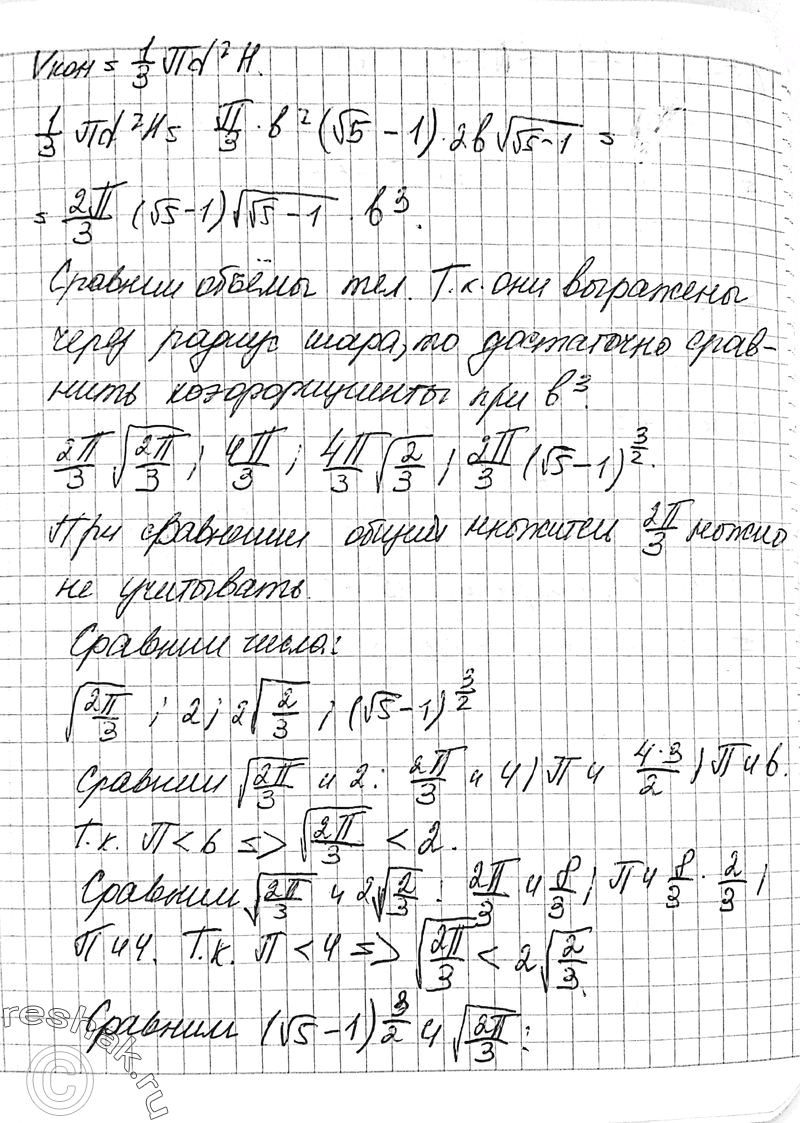 Vкон = 1/3 πd²H.
1/3 πd²H = π/3 · b²(√5 − 1) · 2b√(√5−1) =
= 2π/3 (√5−1)√(√5−1) · b³.
Сравним объёмы тел. Т.к. они выражены
через радиус шара, то достаточно срав-
нить коэффициенты при b³.
2π/3 √(2π/3) ; 4π/3 ; 4π/3 √(2/3) ; 2π/3 (√5−1)^(3/2).
При сравнении общий множитель 2π/3 можно
не учитывать.
Сравним числа:
√(2π/3) ; 2 ; 2√(2/3) ; (√5−1)^(3/2)
Сравним √(2π/3) и 2: 2π/3 и 4; π и 4·3/2; π и 6.
Т.к. π < 6 => √(2π/3) < 2.
Сравним √(2π/3) и 2√(2/3) : 2π/3 и 8/3; π и 8/3 · 2/3;
π и 4. Т.к. π < 4 => √(2π/3) < 2√(2/3).
Сравним (√5−1)^(3/2) и √(2π/3):
reshak.ru
©